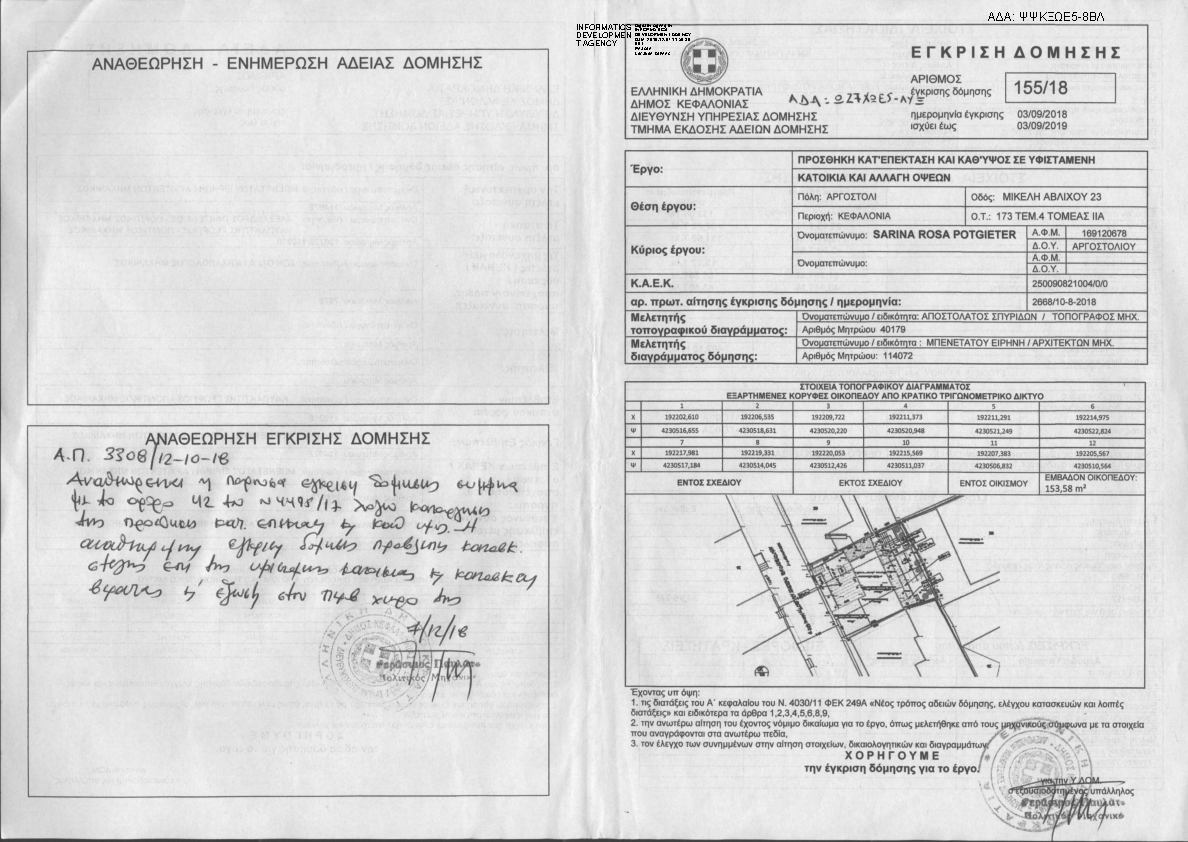 ΑΔΑ: ΨΨΚΞΩΕ5-8ΒΛ
ΑΝΑΘΕΩΡΗΣΗ - ΕΝΗΜΕΡΩΣΗ ΑΔΕΙΑΣ ΔΟΜΗΣΗΣ
ΑΝΑΘΕΩΡΗΣΗ ΕΓΚΡΙΣΗΣ ΔΟΜΗΣΗΣ
Α.Π. 3308/12-10-18
Αναθεωρείται η παρούσα έγκριση δόμησης σύμφωνα
με το άρθρο 42 του Ν4495/17 λόγω κατάργησης
της προσθήκης κατ' επέκταση & καθ' ύψος. Η
αναθεώρηση έγκρισης δόμησης προβλέπει κατασκ.
στέγης επί της υφιστάμενης κατοικίας & κατασκευή
βεράντας
7/12/18
Γεράσιμος Παυλάτος
Πολιτικός Μηχανικός
INFORMATICS
DEVELOPMEN
T AGENCY
ΕΛΛΗΝΙΚΗ ΔΗΜΟΚΡΑΤΙΑ
ΔΗΜΟΣ ΚΕΦΑΛΟΝΙΑΣ
ΔΙΕΥΘΥΝΣΗ ΥΠΗΡΕΣΙΑΣ ΔΟΜΗΣΗΣ
ΤΜΗΜΑ ΕΚΔΟΣΗΣ ΑΔΕΙΩΝ ΔΟΜΗΣΗΣ
ΑΔΑ:
ΕΓΚΡΙΣΗ ΔΟΜΗΣΗΣ
ΑΡΙΘΜΟΣ
έγκρισης δόμησης 155/18
ημερομηνία έγκρισης 03/09/2018
ισχύει έως 03/09/2019
Έργο: ΠΡΟΣΘΗΚΗ ΚΑΤ'ΕΠΕΚΤΑΣΗ ΚΑΙ ΚΑΘ'ΎΨΟΣ ΣΕ ΥΦΙΣΤΑΜΕΝΗ
ΚΑΤΟΙΚΙΑ ΚΑΙ ΑΛΛΑΓΗ ΟΨΕΩΝ
Θέση έργου: Πόλη: ΑΡΓΟΣΤΟΛΙ Οδός: ΜΙΚΕΛΗ ΑΒΛΙΧΟΥ 23
Περιοχή: ΚΕΦΑΛΟΝΙΑ Ο.Τ.: 173 ΤΕΜ.4 ΤΟΜΕΑΣ ΙΙΑ
Κύριος έργου: Όνοματεπώνυμο: SARINA ROSA POTGIETER Α.Φ.Μ. 169120678
Δ.Ο.Υ. ΑΡΓΟΣΤΟΛΙΟΥ
Όνοματεπώνυμο: Α.Φ.Μ.
Δ.Ο.Υ.
Κ.Α.Ε.Κ. 250090821004/0/0
αρ. πρωτ. αίτησης έγκρισης δόμησης / ημερομηνία: 2668/10-8-2018
Μελετητής τοπογραφικού διαγράμματος: Όνοματεπώνυμο / ειδικότητα: ΑΠΟΣΤΟΛΑΤΟΣ ΣΠΥΡΙΔΩΝ / ΤΟΠΟΓΡΑΦΟΣ ΜΗΧ.
Αριθμός Μητρώου 40179
Μελετητής διαγράμματος δόμησης: Όνοματεπώνυμο / ειδικότητα : ΜΠΕΝΕΤΑΤΟΥ ΕΙΡΗΝΗ / ΑΡΧΙΤΕΚΤΩΝ ΜΗΧ.
Αριθμός Μητρώου: 114072
ΣΤΟΙΧΕΙΑ ΤΟΠΟΓΡΑΦΙΚΟΥ ΔΙΑΓΡΑΜΜΑΤΟΣ
ΕΞΑΡΤΗΜΕΝΗΣ ΚΟΡΥΦΕΣ ΟΙΚΟΠΕΔΟΥ ΑΠΟ ΚΡΑΤΙΚΟ ΤΡΙΓΩΝΟΜΕΤΡΙΚΟ ΔΙΚΤΥΟ
1 2 3 4 5 6
Χ 192202,610 192206,535 192209,722 192211,373 192211,291 192214,975
Ψ 4230516,655 4230518,631 4230520,220 4230520,948 4230521,249 4230522,824
7 8 9 10 11 12
Χ 192217,981 192219,331 192220,053 192215,569 192207,383 192205,567
Ψ 4230517,184 4230514,045 4230512,426 4230511,037 4230506,832 4230510,564
ΕΝΤΟΣ ΣΧΕΔΙΟΥ ΕΚΤΟΣ ΣΧΕΔΙΟΥ ΕΝΤΟΣ ΟΙΚΙΣΜΟΥ ΕΜΒΑΔΟΝ ΟΙΚΟΠΕΔΟΥ:
153,58 m²
Έχοντας υπ όψη:
1. τις διατάξεις του Α΄ κεφαλαίου του Ν. 4030/11 ΦΕΚ 249Α «Νέος τρόπος αδειών δόμησης, ελέγχου κατασκευών και λοιπές
διατάξεις» και ειδικότερα τα άρθρα 1,2,3,4,5,6,8,9,
2. την ανωτέρω αίτηση του έχοντος νόμιμο δικαίωμα για το έργο, όπως μελετήθηκε από τους μηχανικούς σύμφωνα με τα στοιχεία
που αναγράφονται στα ανωτέρω πεδία,
3. τον έλεγχο των συνημμένων στην αίτηση στοιχείων, δικαιολογητικών και διαγραμμάτων,
ΧΟΡΗΓΟΥΜΕ
την έγκριση δόμησης για το έργο.
για την Υ.ΔΟΜ.
ο εξουσιοδοτημένος υπάλληλος
Γεράσιμος Παυλάτος
Πολιτικός Μηχανικός